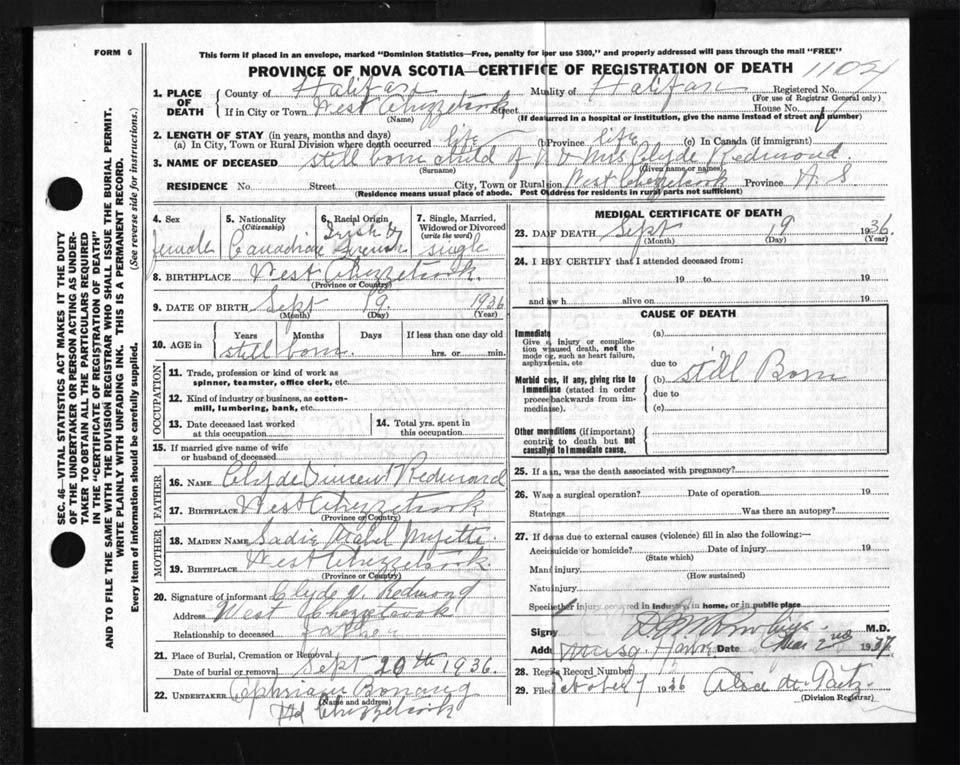 FORM 6
This form if placed in an envelope, marked "Dominion Statistics—Free, penalty for iper use $300," and properly addressed will pass through the mail "FREE"
PROVINCE OF NOVA SCOTIA—CERTIFICATE OF REGISTRATION OF DEATH 1102
1. PLACE OF DEATH
County of Halifax Muality of Halifax Registered No.
(For use of Registrar General only)
If in City or Town West Chezzetcook Street House No.
(Name) (If deaturred in a hospital or institution, give the name instead of street and number)
2. LENGTH OF STAY (in years, months and days)
(a) In City, Town or Rural Division where death occurred life (b) Province life (c) In Canada (if immigrant)
3. NAME OF DECEASED still born child of & Mrs Clyde Redmond
(Surname) (Given name or names)
RESIDENCE No. Street City, Town or Rural West Chezzetcook Province N. S
(Residence means usual place of abode. Post Office address for residents in rural parts not sufficient)
4. Sex
female
5. Nationality
(Citizenship)
Canadian
6. Racial Origin
Irish &
French
7. Single, Married, Widowed or Divorced
(write the word)
single
8. BIRTHPLACE West Chezzetcook.
(Province or Country)
9. DATE OF BIRTH Sept 19 1936
(Month) (Day) (Year)
10. AGE in Years Months Days If less than one day old
still born. hrs. or min.
OCCUPATION
11. Trade, profession or kind of work as
spinner, teamster, office clerk, etc.
12. Kind of industry or business, as cotton-
mill, lumbering, bank, etc.
13. Date deceased last worked
at this occupation
14. Total yrs. spent in
this occupation
15. If married give name of wife
or husband of deceased
FATHER
16. NAME Clyde Vincent Redmond
17. BIRTHPLACE West Chezzetcook
(Province or Country)
MOTHER
18. MAIDEN NAME Sadie Mabel
19. BIRTHPLACE West Chezzetcook.
(Province or Country)
20. Signature of informant Clyde V. Redmond
Address West Chezzetcook
Relationship to deceased father
21. Place of Burial, Cremation or Removal
Date of burial or removal Sept 20th 1936.
22. UNDERTAKER Ephriam Bonang
(Name and address)
Hd Chezzetcook
MEDICAL CERTIFICATE OF DEATH
23. DAF DEATH Sept 19 1936.
(Month) (Day) (Year)
24. I HBY CERTIFY that I attended deceased from:
19 to 19
and law h alive on 19
CAUSE OF DEATH
Immediate
Give is, injury or complica-
tion waused death, not the
mode og, such as heart failure,
asphyxnia, etc
(a)
due to
(b) still Born
due to
(c)
Morbid cns, if any, giving rise to
immediuse (stated in order
proceebackwards from im-
mediaise).
Other moreditions (if important)
contrig to death but not
causallyd to immediate cause.
25. If a an, was the death associated with pregnancy?
26. Was a surgical operation? Date of operation 19
Statengs Was there an autopsy?
27. If deas due to external causes (violence) fill in also the following:—
Accisuicide or homicide? Date of injury 19
(State which)
Maninjury
(How sustained)
Natuinjury
Speciether injury occured in industry, in home, or in public place
Signy D. Rowlings M.D.
Addr Musq. Harb. Date Mar 2nd 1937
28. Regis Record Number
29. Filed October 7 1936
(Division Registrar)
SEC. 46—VITAL STATISTICS ACT MAKES IT THE DUTY
OF THE UNDERTAKER OR PERSON ACTING AS UNDER-
TAKER TO OBTAIN ALL THE PARTICULARS REQUIRED
IN THE "CERTIFICATE OF REGISTRATION OF DEATH"
AND TO FILE THE SAME WITH THE DIVISION REGISTRAR WHO SHALL ISSUE THE BURIAL PERMIT.
WRITE PLAINLY WITH UNFADING INK. THIS IS A PERMANENT RECORD.
Every item of information should be carefully supplied. (See reverse side for instructions.)